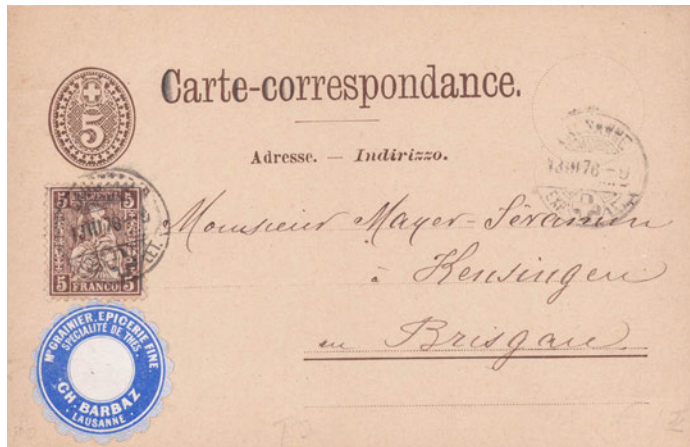 Carte-correspondance.
5
Adresse. — Indirizzo.
LAUSANNE
13 III 76
EXP. LET.
5 5
5 FRANCO 5
13 III 76
LET.
Monsieur Mayer-Séraminn
à Kensingen
en Brisgau
Mᴰ GRAINIER. EPICERIE FINE.
SPÉCIALITÉ DE THÉS.
CH. BARBAZ
LAUSANNE